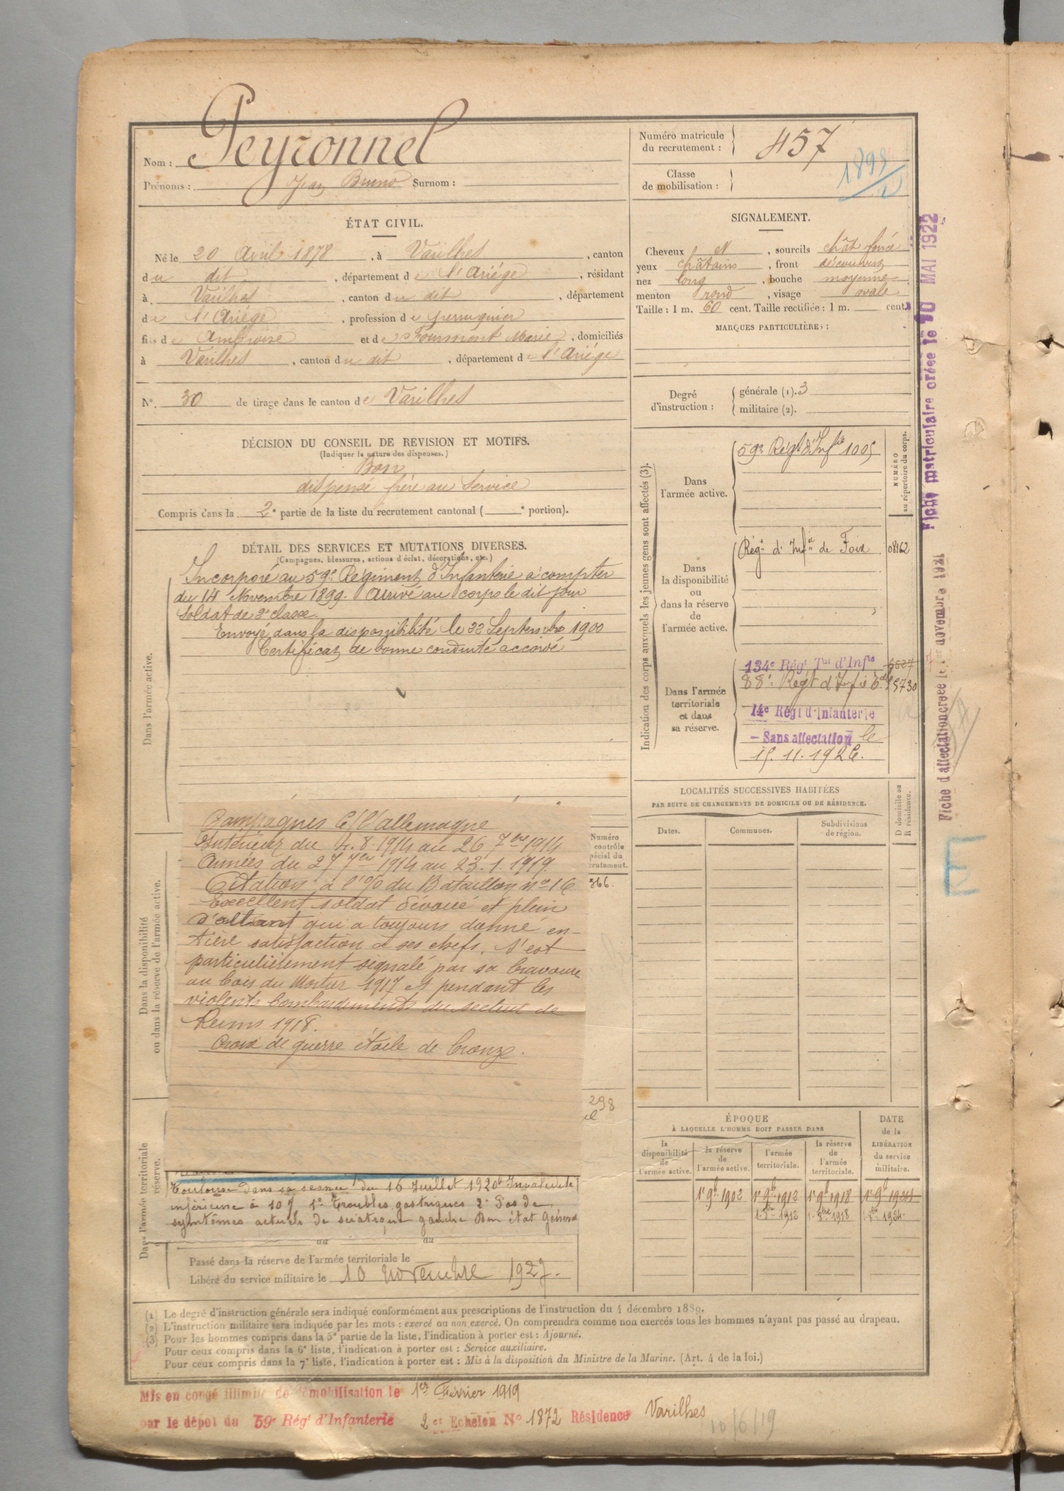 Nom : Peyronnel
Prénoms : Jean Bruno Surnom :
ÉTAT CIVIL.
Né le 20 Avril 1878, à Varilhes, canton
du dit, département de l'Ariège, résidant
à Varilhes, canton du dit, département
de l'Ariège, profession de
fils de Ambroise et de Marie, domiciliés
à Varilhes, canton du dit, département de l'Ariège
N° 30 de tirage dans le canton de Varilhes
DÉCISION DU CONSEIL DE REVISION ET MOTIFS.
(Indiquer la nature des dispenses.)
Bon
dispensé frère au Service
Compris dans la 2e partie de la liste du recrutement cantonal ( e portion).
DÉTAIL DES SERVICES ET MUTATIONS DIVERSES.
(Campagnes, blessures, actions d'éclat, décorations, etc.)
Dans l'armée active.
Incorporé au 59e Régiment d'Infanterie à compter
du 14 Novembre 1899. Arrivé au corps le dit jour
Soldat de 2e classe.
Envoyé dans la disponibilité le 22 Septembre 1900
Certificat de bonne conduite accordé
Dans la disponibilité
ou dans la réserve de l'armée active.
Campagnes C/ l'allemagne
Intérieur du 4.8 1914 au 26 7bre 1914
Armées du 27 7bre 1914 au 23.1.1919
Citation à l'O/ du Bataillon no 16
Excellent soldat dévoué et plein
d'allant qui a toujours donné en-
tière satisfaction à ses chefs. S'est
particulièrement signalé par sa bravoure
au bois du Mortier 1917 et pendant les
violents bombardements du secteur de
Reims 1918.
Croix de guerre étoile de bronze.
Numéro
contrôle
spécial du
recrutement.
366.
298
Dans l'armée territoriale
réserve.
Toulouse dans sa séance du 16 Juillet 1920 Invalidité
inférieure à 10% 1° Troubles gastriques 2° Pas de
symtômes actuels de sciatique gauche Bon état général
Passé dans la réserve de l'armée territoriale le
Libéré du service militaire le 10 novembre 1927.
Numéro matricule
du recrutement : 457
Classe
de mobilisation : 1898
SIGNALEMENT.
Cheveux et, sourcils chât foncé
yeux châtains, front découvert
nez long, bouche moyenne
menton rond, visage ovale
Taille : 1 m. 60 cent. Taille rectifiée : 1 m. cent.
MARQUES PARTICULIÈRES :
Degré
d'instruction :
générale (1). 3
militaire (2).
Indication des corps auxquels les jeunes gens sont affectés (3).
NUMÉRO
au répertoire du corps.
Dans
l'armée active.
59e Régt d'Infie 1005
Dans
la disponibilité
ou
dans la réserve
de
l'armée active.
Régt d'Infie de Foix 08162
Dans l'armée
territoriale
et dans
sa réserve.
134e Régt Tal d'Infie
88e Régt d'Infie
14e Régt d'Infanterie
- Sans affectation le
15.11.1926.
LOCALITÉS SUCCESSIVES HABITÉES
PAR SUITE DE CHANGEMENTS DE DOMICILE OU DE RÉSIDENCE.
Dates. Communes. Subdivisions
de région. D domicile ou
R résidence.
ÉPOQUE
À LAQUELLE L'HOMME DOIT PASSER DANS
la
disponibilité
de
l'armée active.
la réserve
de
l'armée active.
l'armée
territoriale.
la réserve
de
l'armée
territoriale.
DATE
de la
LIBÉRATION
du service
militaire.
Fiche matriculaire créée le 10 MAI 1922
E
(1) Le degré d'instruction générale sera indiqué conformément aux prescriptions de l'instruction du 4 décembre 1889.
(2) L'instruction militaire sera indiquée par les mots : exercé ou non exercé. On comprendra comme non exercés tous les hommes n'ayant pas passé au drapeau.
(3) Pour les hommes compris dans la 5e partie de la liste, l'indication à porter est : Ajourné.
Pour ceux compris dans la 6e liste, l'indication à porter est : Service auxiliaire.
Pour ceux compris dans la 7e liste, l'indication à porter est : Mis à la disposition du Ministre de la Marine. (Art. 4 de la loi.)
Mis en congé illimité de démobilisation le 1er Février 1919
par le dépôt du 59e Régt d'Infanterie 2e Echelon N° 1872 Résidence Varilhes
10/6/19